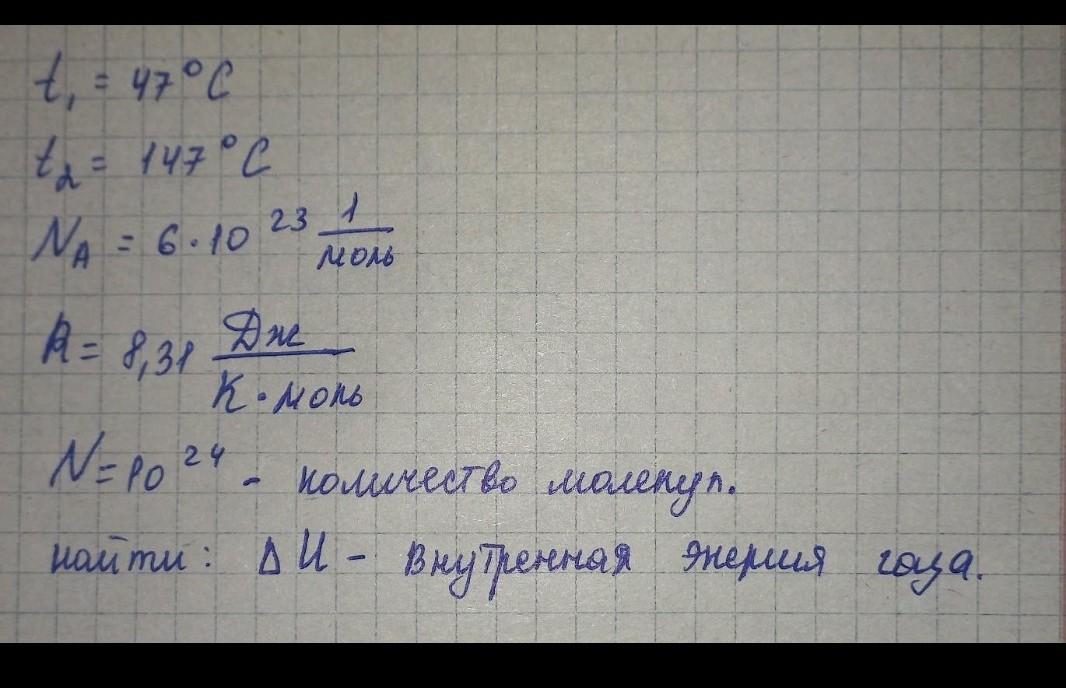 t₁ = 47°C
t₂ = 147°C
N_A = 6·10²³ 1/моль
R = 8,31 Дж/К·моль
N = 10²⁴ - количество молекул.
найти: ΔU - внутренная энергия газа.